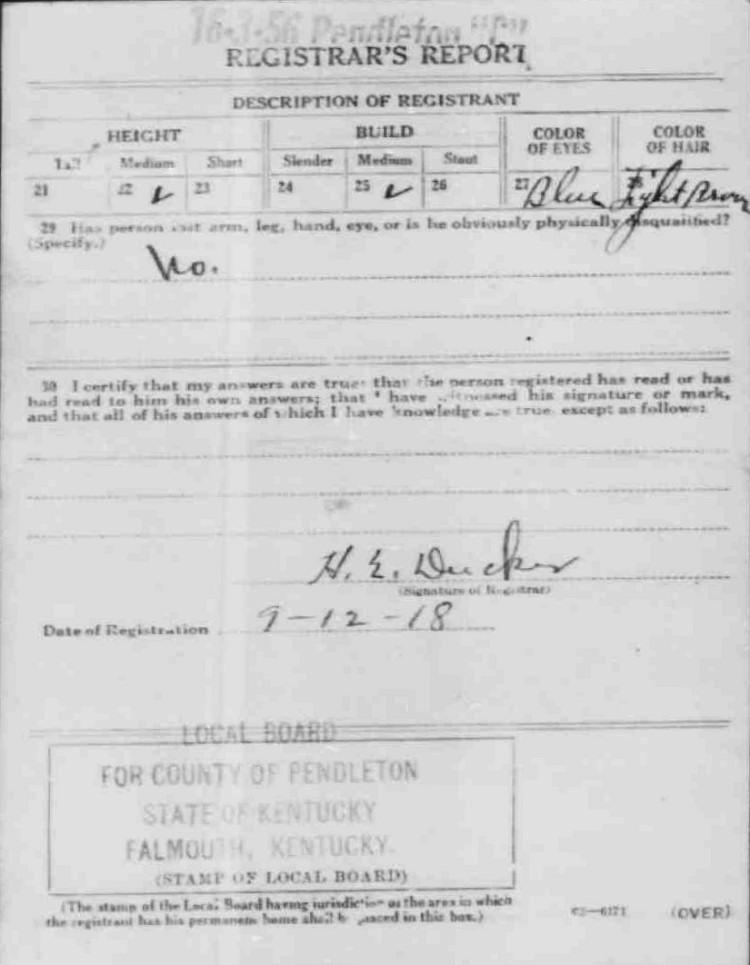 16-3-56 Pendleton "C"
REGISTRAR'S REPORT
DESCRIPTION OF REGISTRANT
HEIGHT BUILD COLOR OF EYES COLOR OF HAIR
Tall Medium Short Slender Medium Stout
21 22 ✓ 23 24 25 ✓ 26 27 Blue 28 Light Brown
29 Has person lost arm, leg, hand, eye, or is he obviously physically disqualified?
(Specify.)
No.
30 I certify that my answers are true; that the person registered has read or has
had read to him his own answers; that I have witnessed his signature or mark,
and that all of his answers of which I have knowledge are true, except as follows:
H. E. Ducker
(Signature of Registrar)
Date of Registration 9-12-18
LOCAL BOARD
FOR COUNTY OF PENDLETON
STATE OF KENTUCKY
FALMOUTH, KENTUCKY.
(STAMP OF LOCAL BOARD)
(The stamp of the Local Board having jurisdiction of the area in which
the registrant has his permanent home shall be placed in this box.)
03—6171 (OVER)